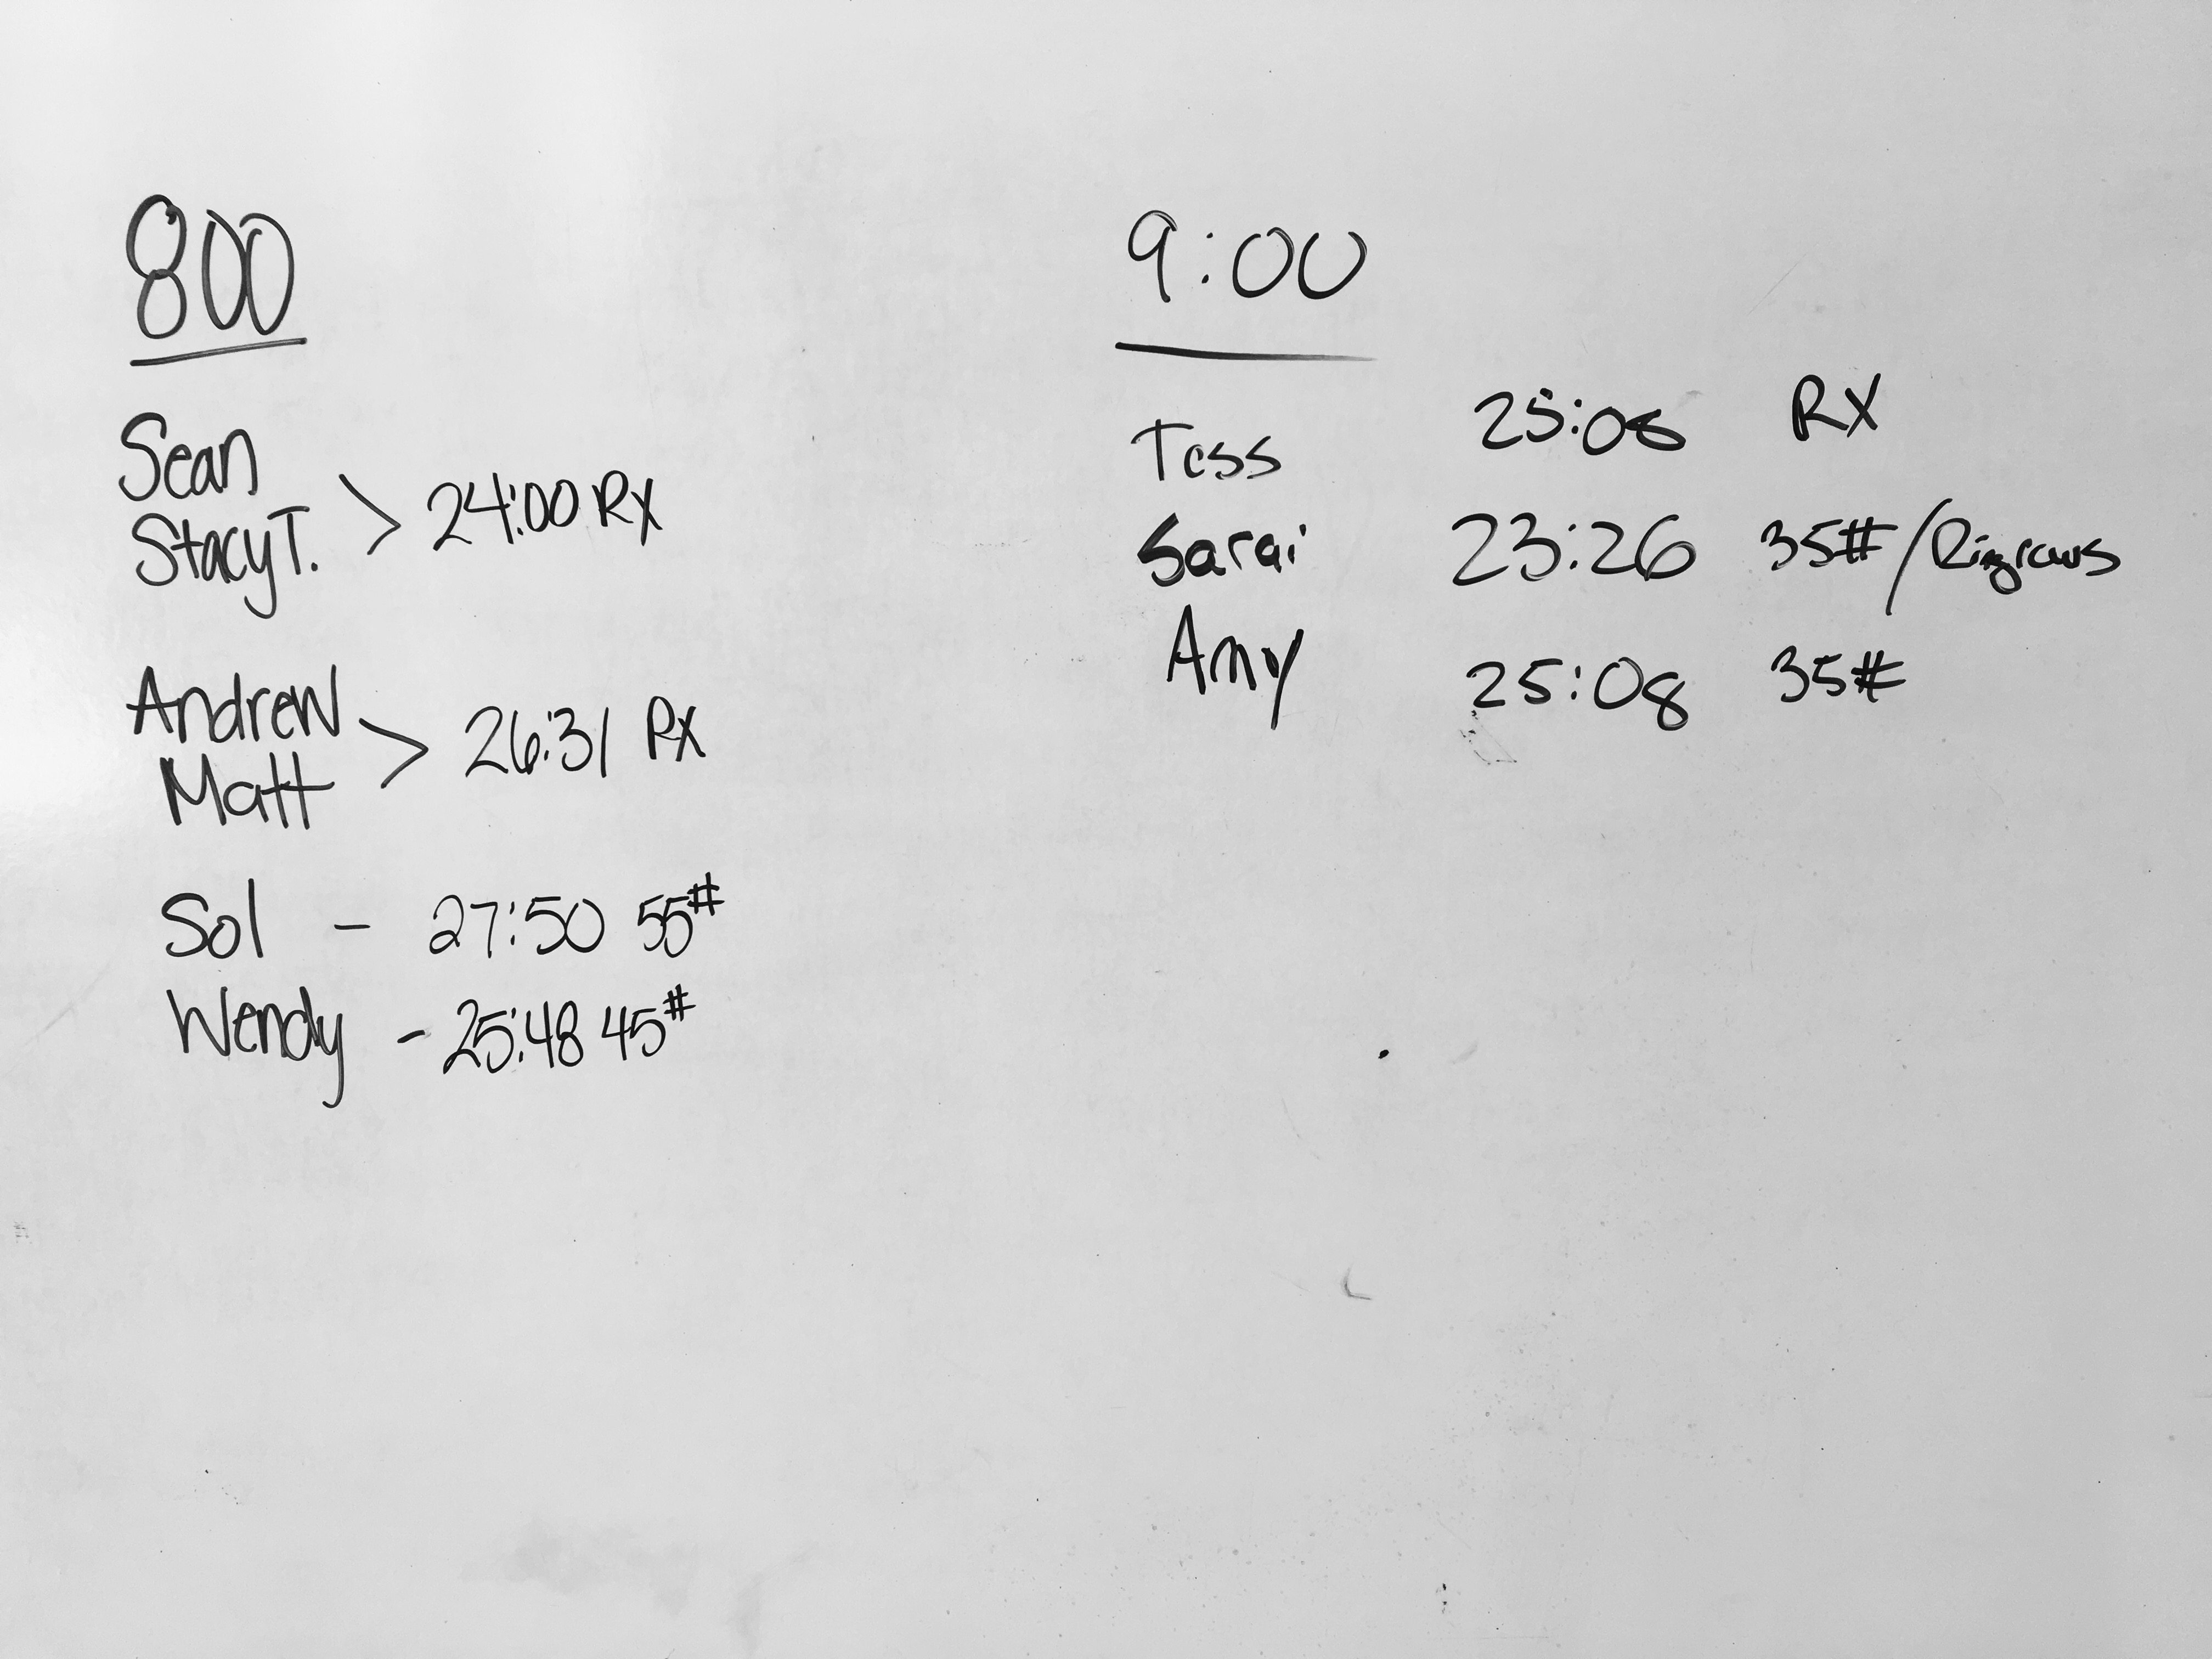 800
Sean
StacyT. > 24:00 Rx
Andrew
Matt > 26:31 Rx
Sol - 27:50 55#
Wendy - 25:48 45#
9:00
Tess 25:08 RX
Sarai 23:26 35# / Ringrows
Amy 25:08 35#